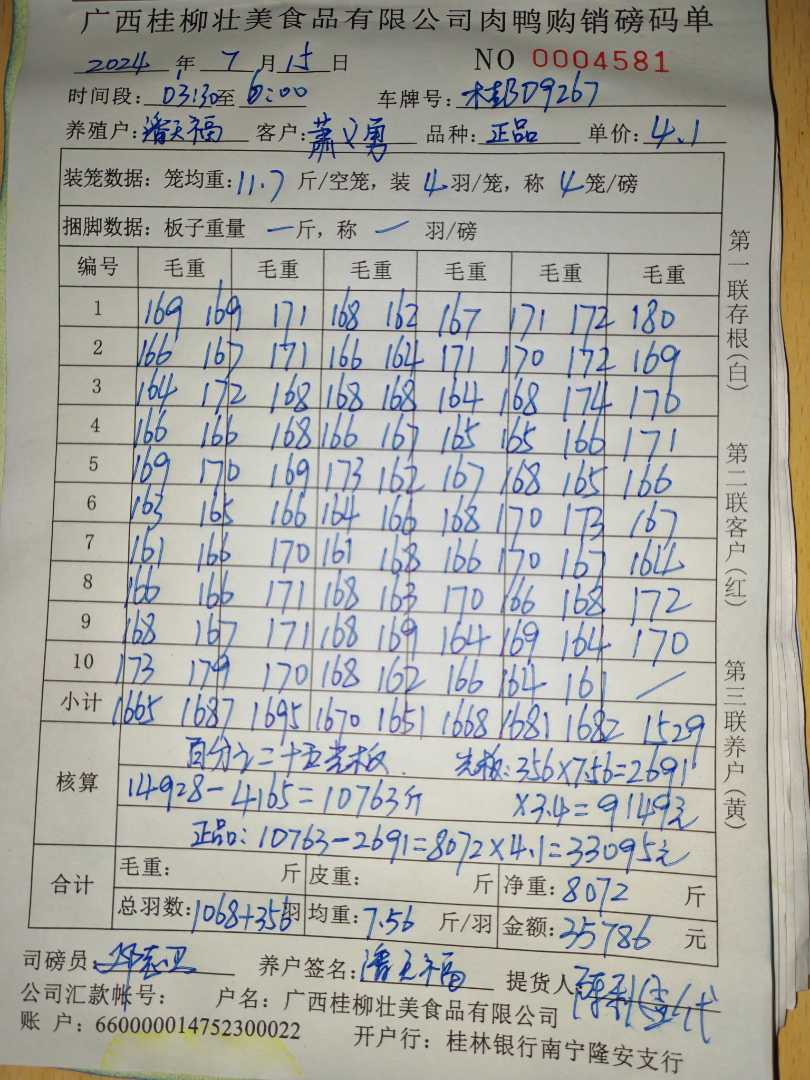 广西桂柳壮美食品有限公司肉鸭购销磅码单
2024 年 7 月 15 日 NO 0004581
时间段: 03:30 至 6:00 车牌号: 桂BD9267
养殖户: 潘天福 客户: 萧义勇 品种: 正品 单价: 4.1
装笼数据: 笼均重: 11.7 斤/空笼, 装 4 羽/笼, 称 4 笼/磅
捆脚数据: 板子重量 一 斤, 称 一 羽/磅
编号 毛重 毛重 毛重 毛重 毛重 毛重
1 169 169 171 168 162 167 171 172 180
2 166 167 171 166 164 171 170 172 169
3 164 172 168 168 168 164 168 174 170
4 166 166 168 166 167 165 165 166 171
5 169 170 169 173 162 167 168 165 166
6 163 165 166 164 166 168 170 173 167
7 161 166 170 161 168 166 170 167 164
8 166 166 171 168 163 170 166 168 172
9 168 167 171 168 169 164 169 164 170
10 173 179 170 168 162 166 164 161 /
小计 1665 1687 1695 1670 1651 1668 1681 1682 1529
核算
百分之二十五光板. 光板: 356×7.56=2691
14928-4165=10763斤 ×3.4=9149元
正品: 10763-2691=8072×4.1=33095元
合计
毛重: 斤 皮重: 斤 净重: 8072 斤
总羽数: 1068+356 羽 均重: 7.56 斤/羽 金额: 35786 元
司磅员: 养户签名: 潘天福 提货人:
公司汇款帐号: 户名: 广西桂柳壮美食品有限公司
账 户: 660000014752300022 开户行: 桂林银行南宁隆安支行
第一联存根(白)
第二联客户(红)
第三联养户(黄)